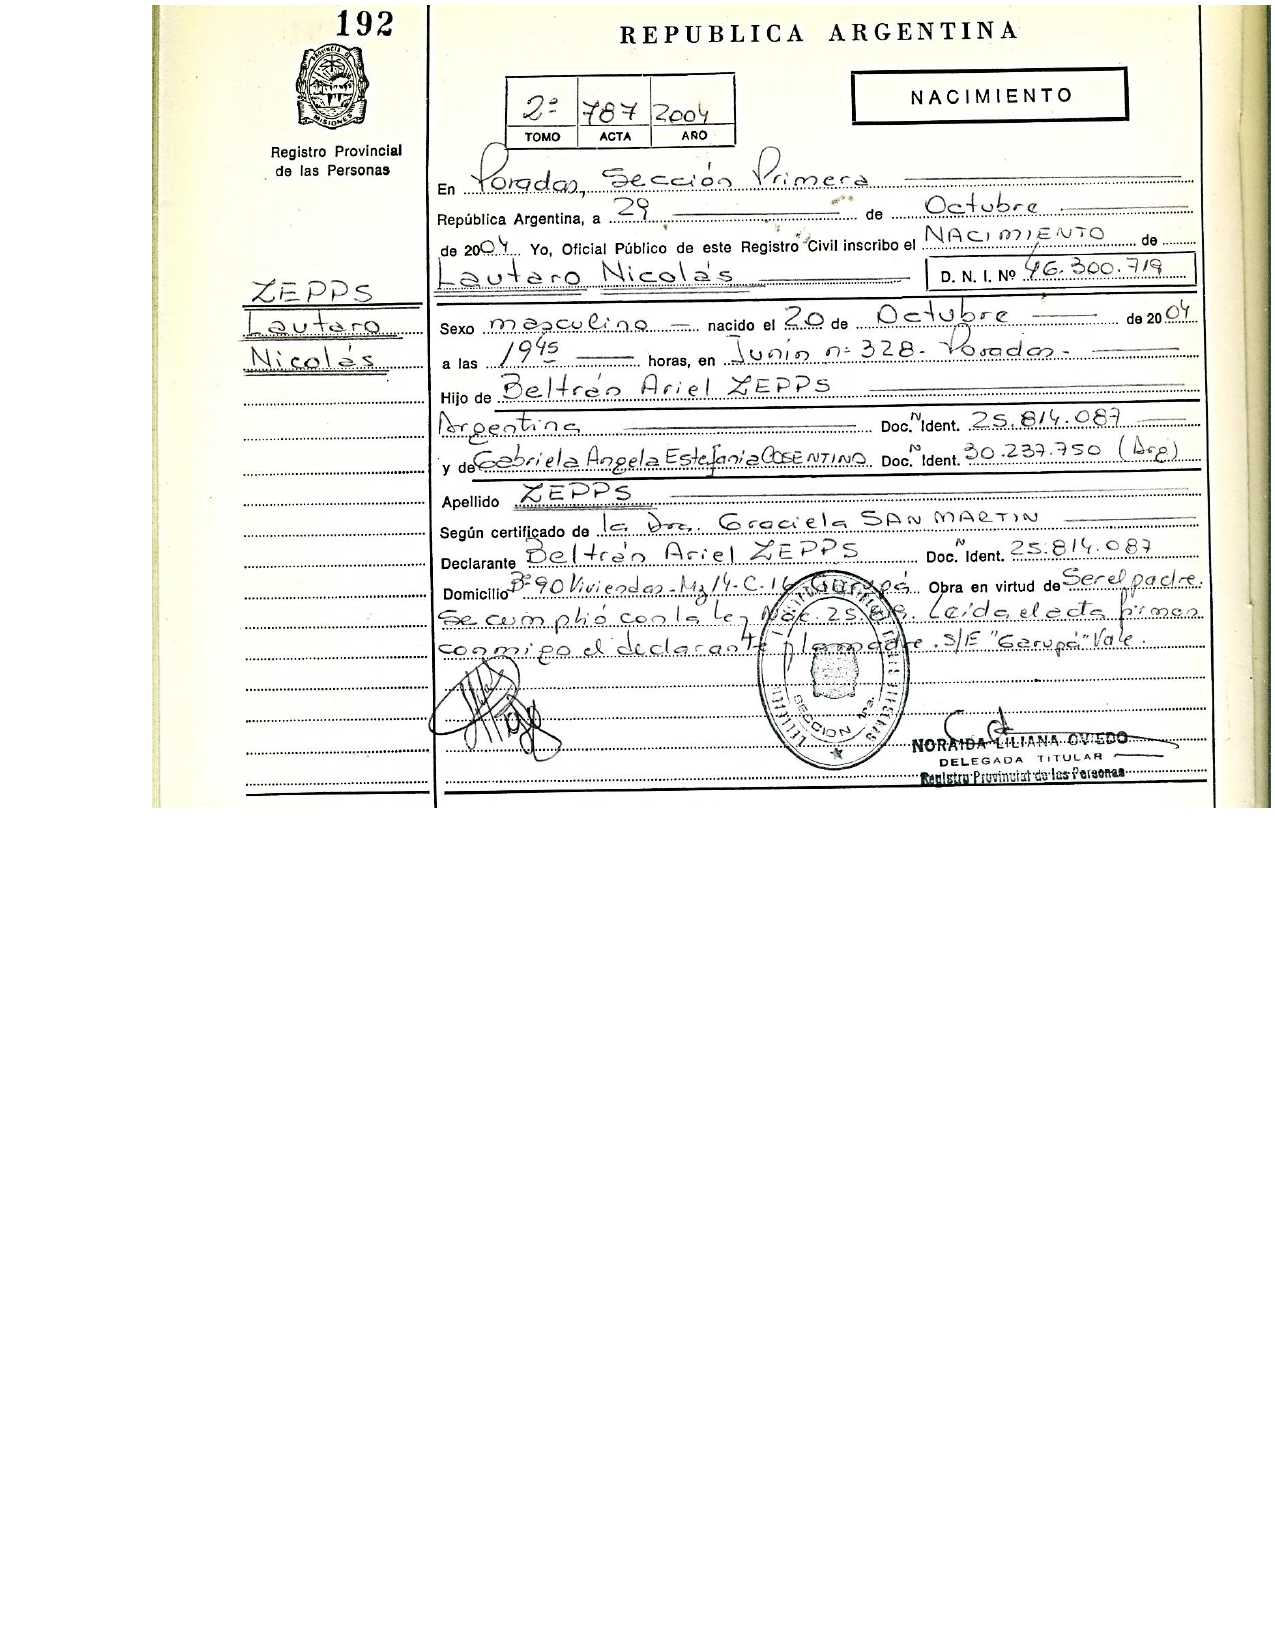 192
REPUBLICA ARGENTINA
PROVINCIA DE MISIONES
Registro Provincial
de las Personas
2º 787 2004
TOMO ACTA AÑO
NACIMIENTO
En Posadas, Sección Primera
República Argentina, a 29 de Octubre
de 2004 Yo, Oficial Público de este Registro Civil inscribo el NACIMIENTO de
Lautaro Nicolás D. N. I. Nº 46.300.719
ZEPPS
Lautaro
Nicolás
Sexo masculino nacido el 20 de Octubre de 2004
a las 19 45 horas, en Junín nº 328 - Posadas -
Hijo de Beltrán Ariel ZEPPS
Argentina Doc. N Ident. 25.814.087
y de Gabriela Angela Estefanía COSENTINO Doc. N Ident. 30.237.750 (Arg)
Apellido ZEPPS
Según certificado de la Dra. Graciela SAN MARTIN
Declarante Beltrán Ariel ZEPPS Doc. N Ident. 25.814.087
Domicilio Bº 90 Viviendas - Mz 14 - C - 16 Garupá Obra en virtud de Ser el padre.
Se cumplió con la ley Nac. 25.819. Leída el acta firman
conmigo el declarante y la madre. S/E "Garupá" Vale.
SECCION 1ra.
NORAIDA LILIANA OVIEDO
DELEGADA TITULAR
Registro Provincial de las Personas